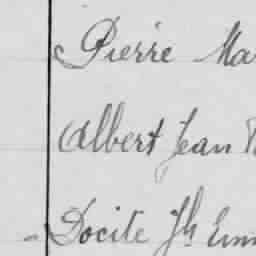 Pierre Mar
Albert Jean
Docite Jh Emm